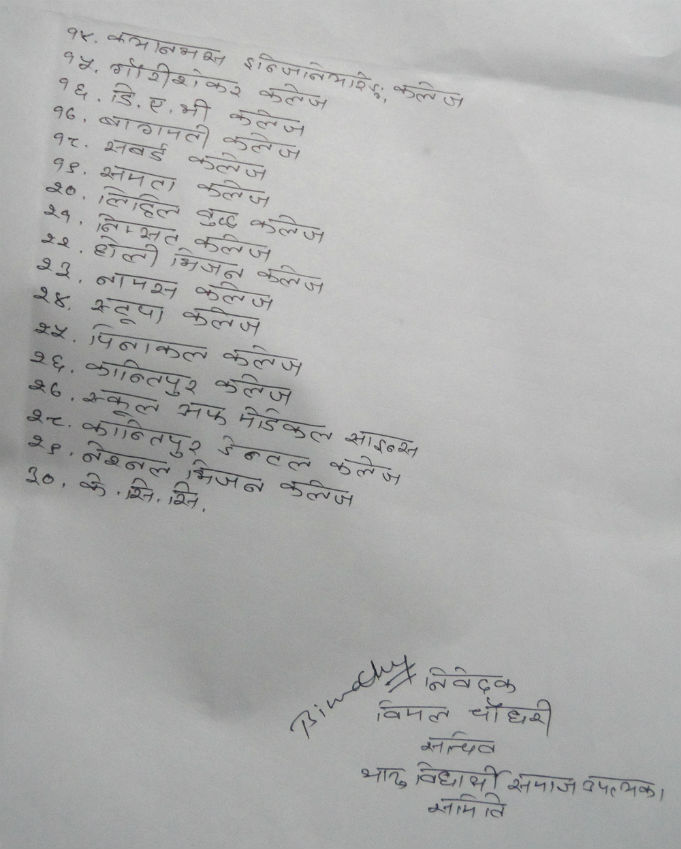 १४. क्यानभस इन्जिनियरिङ्ग कलेज
१५. गौरीशंकर कलेज
१६. डि. ए. भी कलेज
१७. बागमती कलेज
१८. सवई कलेज
१९. समता कलेज
२०. लिटिल बुद्ध कलेज
२१. निम्सत कलेज
२२. होली भिजन कलेज
२३. नामस कलेज
२४. स्तूपा कलेज
२५. पिनाकल कलेज
२६. कान्तिपुर कलेज
२७. स्कूल अफ मेडिकल साइन्स
२८. कान्तिपुर डेन्टल कलेज
२९. नेश्नल भिजन कलेज
३०. के. सि. सि.
निवेदक
विमल चौधरी
सचिव
थारु विद्यार्थी समाज उपत्यका
समिति